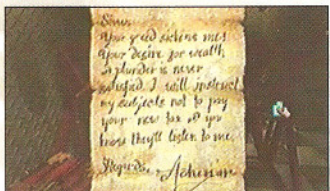 Sirrus,
Your greed sickens me!
Your desire for wealth
& plunder is never
satisfied. I will instruct
my subjects not to pay
your new tax & you
know they'll listen to me.
Regards, Achenar